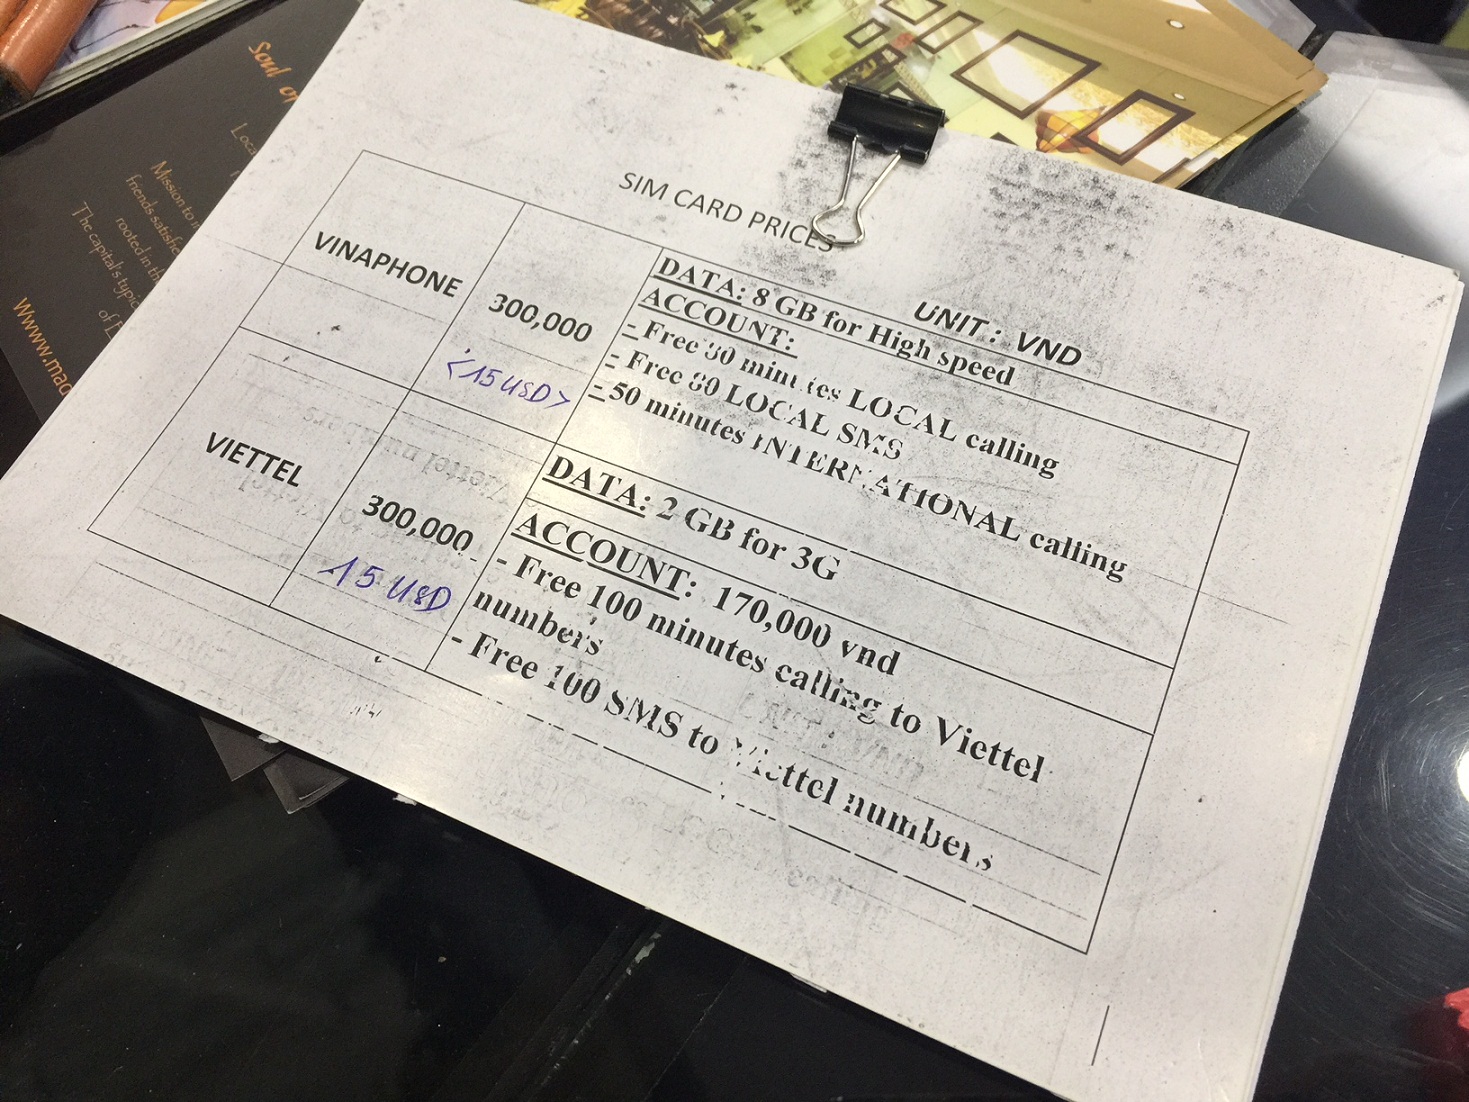 Soul of
Mission to
friends satisfie
rooted in th
The capital's typic
of
Www.mad
SIM CARD PRICES
UNIT.: VND
VINAPHONE
300,000
<15 USD>
DATA: 8 GB for High speed
ACCOUNT:
- Free 30 minutes LOCAL calling
- Free 30 LOCAL SMS
- 50 minutes INTERNATIONAL calling
VIETTEL
300,000
15 USD
DATA: 2 GB for 3G
ACCOUNT: 170,000 vnd
- Free 100 minutes calling to Viettel
numbers
- Free 100 SMS to Viettel numbers